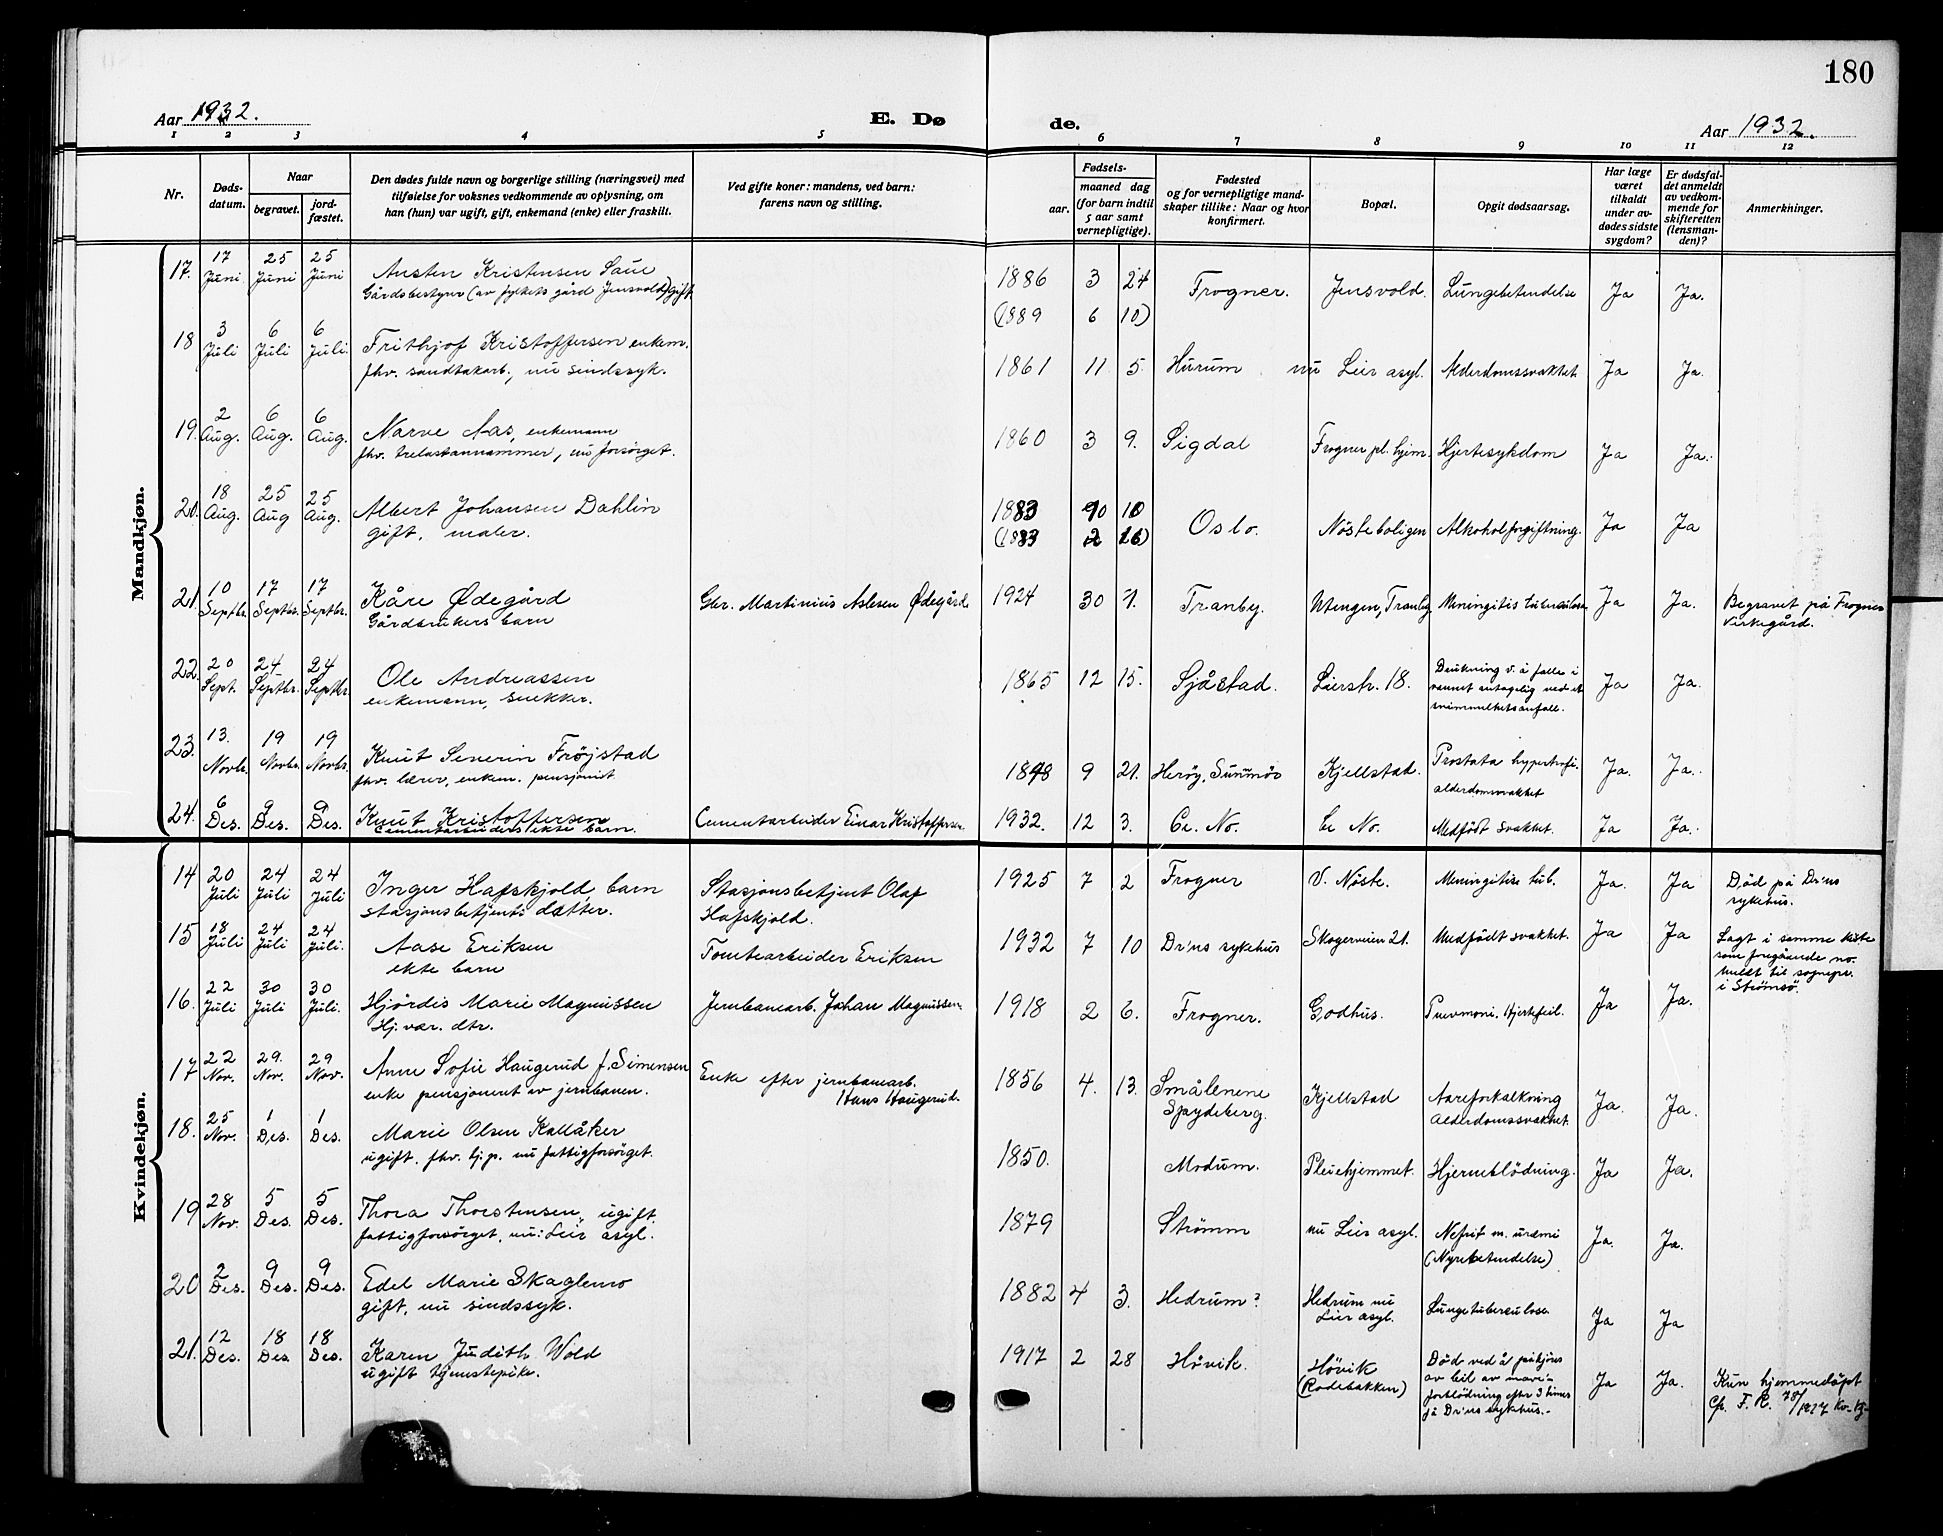 180
Aar 1932.
E. Døde.
Aar 1932.
1 2 3 4 5 6 7 8 9 10 11 12
Nr.
Døds-
datum.
Naar
begravet.
jord-
fæstet.
Den dødes fulde navn og borgerlige stilling (næringsvei) med
tilføielse for voksnes vedkommende av oplysning, om
han (hun) var ugift, gift, enkemand (enke) eller fraskilt.
Ved gifte koner: mandens, ved barn:
farens navn og stilling.
Fødsels-
aar.
maaned dag
(for barn indtil
5 aar samt
vernepligtige).
Fødested
og for vernepligtige mand-
skaper tillike: Naar og hvor
konfirmert.
Bopæl.
Opgit dødsaarsag.
Har læge
været
tilkaldt
under av-
dødes sidste
sygdom?
Er dødsfal-
det anmeldt
av vedkom-
mende for
skifteretten
(lensman-
den)?
Anmerkninger.
Mandkjøn.
17. 17 Juni 25 Juni 25 Juni Austen Kristensen Saue 1886 3 24 Frogner. Jensvold. Lungebetendelse Ja Ja.
Gårdsbestyrer (av fylkets gård Jensvold) gift. (1889 6 10)
18 3 Juli 6 Juli 6 Juli. Frithjof Kristoffersen enkem. 1861 11 5. Hurum nu Lier asyl. Alderdomssvakhet. Ja Ja.
fhv. sandtakarb., nu sindssyk.
19. 2 Aug. 6 Aug. 6 Aug. Narve Aas, enkemann 1860 3 9. Sigdal Frogner pl. hjem. Hjertesykdom Ja Ja.
fhv. trelastannammer, nu forsørget.
20. 18 Aug. 25 Aug 25 Aug. Albert Johansen Dahlin 1883 10 10 Oslo. Nöste boligen Alkoholforgiftning. Ja Ja
gift, maler. (1883 2 16)
21. 10 Septbr. 17 Septbr. 17 Septbr. Kåre Ødegård Gbr. Martinius Aslesen Ødegård 1924 30 7. Tranby. Utengen, Tranby Meningitis tuberculosa Ja Ja. Begravet på Frogner
Gårdbrukers barn kirkegård.
22. 20 Sept. 24 Septbr. 24 Septbr. Ole Andreassen 1865 12 15. Sjåstad. Lierstr. 18. Drukning v. å falle i Ja Ja.
enkemann, snekker. vannet antagelig ved et
svimmelhetsanfall.
23. 13. Novbr. 19 Novbr. 19 Novbr. Knut Severin Frøjstad 1848 9 21. Herøy, Sunnmör Kjellstad. Prostata hypertrofi. Ja. Ja.
fhv. lærer, enkem. pensjonist alderdomssvakhet
24. 6 Des. 9 Des. 9 Des. Knut Kristoffersen Cementarbeider Einar Kristoffersen 1932. 12 3. Ce. No. Ce No. Medfödt svakhet. Ja Ja.
Cementarbeiders ekte barn.
Kvindekjøn.
14 20 Juli 24 Juli 24 Juli Inger Hafskjold, barn Stasjonsbetjent Olaf 1925 7 2 Frogner V. Nöste. Meningitis tub. Ja. Ja Död på Dr'ns
stasjonsbetjents datter. Hafskjold. sykehus.
15 18 Juli 24 Juli 24 Juli. Aase Eriksen Tomtearbeider Eriksen 1932 7 10 Dr'ns sykehus Skogerveien 21. Medfödt svakhet. Ja Ja Lagt i samme kiste
ekte barn som foregående no.
meldt til sognepr.
i Strömsö.
16. 22 Juli 30 Juli 30 Juli. Hjördis Marie Magnussen Jernbanearb. Johan Magnussen 1918 2 6. Frogner. Godhus. Pnevmoni. Hjertefeil. Ja Ja.
Hj. vær. dtr.
17 22 Nov. 29. Nov. 29 Nov. Anne Sofie Haugerud f. Simensen Enke efter jernbanearb. 1856 4. 13. Smålenene Kjellstad Aareforkalkning Ja. Ja.
enke pensjonert av jernbanen. Hans Haugerud. Spydeberg. Alderdomssvakhet.
18. 25 Nov. 1 Des. 1 Des. Marie Olsen Kallåker 1850. Modum. Pleiehjemmet. Hjerneblödning. Ja Ja.
ugift. fhv. tj.p. nu fattigforsörget.
19 28 Nov. 5 Des. 5 Des. Thora Thorstensen, ugift. 1879 Strömm nu Lier asyl. Nefrit m. uræmi Ja. Ja.
fattigforsörget, nu: Lier asyl. (Nyrebetendelse)
20 2 Des. 9 Des. 9 Des. Edel Marie Skaglemo 1882 4 3. Hedrum? Hedrum nu Lungetuberculose Ja Ja
gift, nu sindssyk. Lier asyl.
21. 12 Des. 18 Des. 18 Des. Karen Judith Wold 1917 2 28 Hövik. Hövik Död ved å påkjöres Ja Ja. Kun hjemmedöpt
ugift tjenestepike. (Rodebakken) av bil av mave- Cfr. F. R. 78/1917 Kv. kj.
forblödning efter 3 timer
på Dr'ns sykehus.